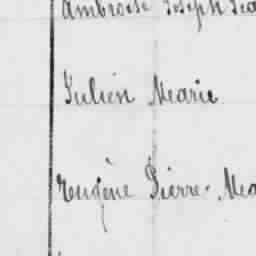 Ambroise Joseph
Julien Marie
Eugène Pierre